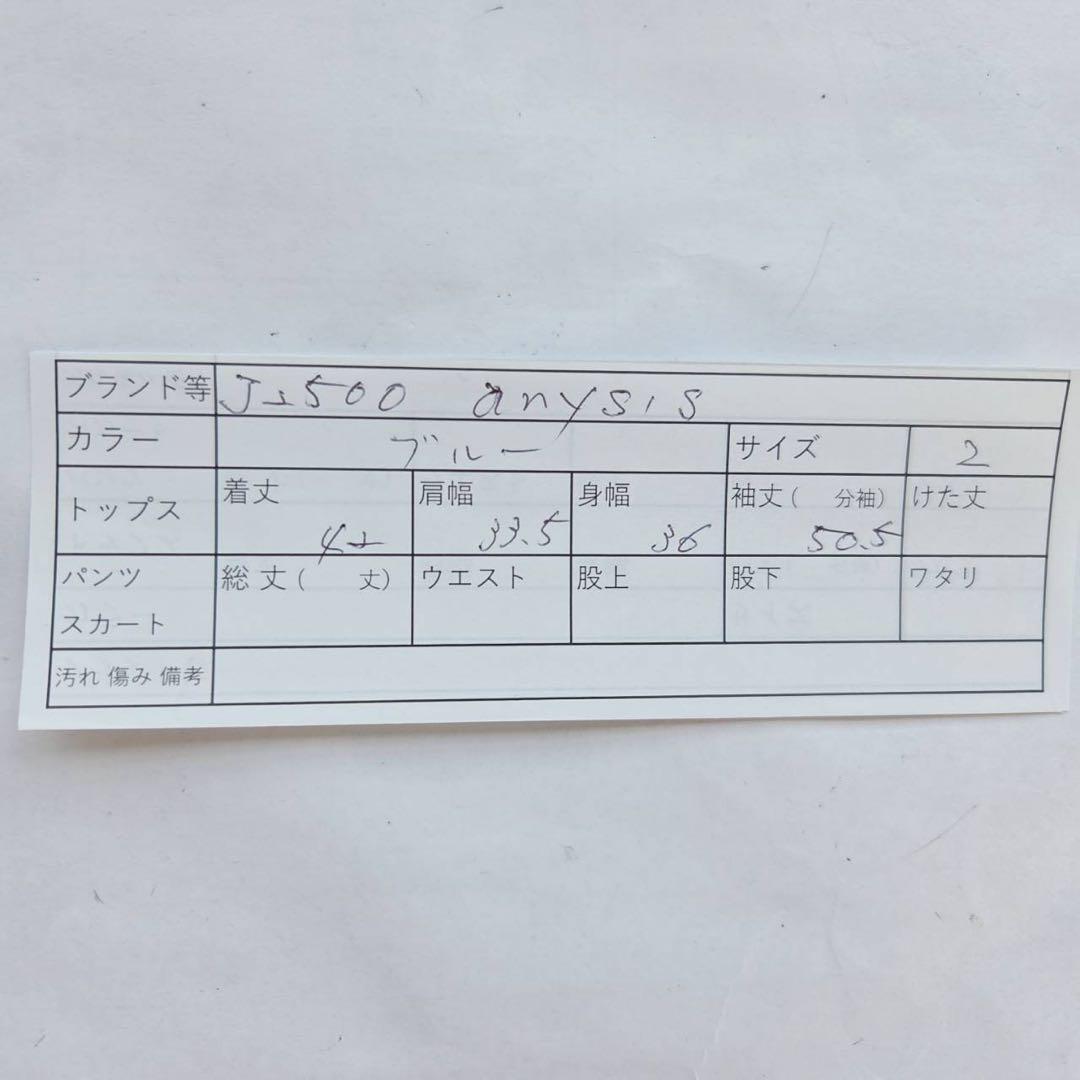 ブランド等 J2500 anysis
カラー ブルー サイズ 2
トップス 着丈 42 肩幅 33.5 身幅 36 袖丈( 分袖) 50.5 けた丈
パンツ スカート 総丈( 丈) ウエスト 股上 股下 ワタリ
汚れ 傷み 備考